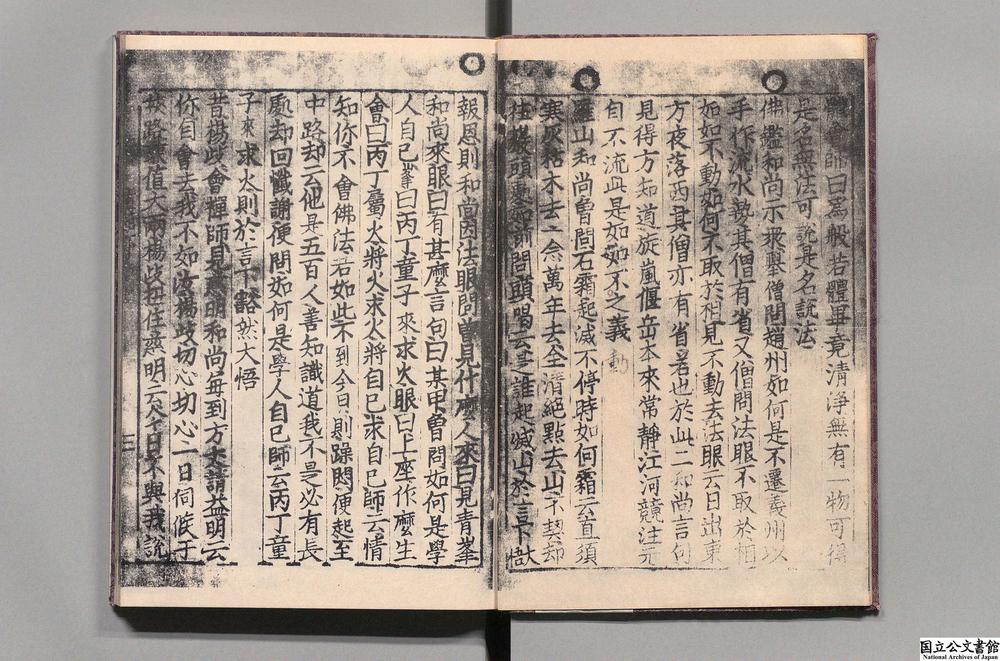 師曰為般若體畢竟清淨無有一物可得
是名無法可說是名說法
佛鑑和尚示衆舉僧問趙州如何是不遷義州以
手作流水勢其僧有省又僧問法眼不取於相
如如不動如何不取於相見不動去法眼云日出東
方夜落西其僧亦有省若也於此二和尚言句
見得方知道旋嵐偃岳本來常靜江河競注元
自不流其或如如不之義
動
羅山和尚曾問石霜起滅不停時如何霜云直須
寒灰枯木去一念萬年去全清絕點去山不契却
往巖頭處如前問頭喝云是誰起滅山於言下大
報恩則和尚因法眼問曾見什麼人來曰見青峯
和尚來眼曰有甚麼言句曰某甲曾問如何是學
人自己峯曰丙丁童子來求火眼曰上座作麼生
會曰丙丁屬火將火求火將自己求自己師云情
知你不會佛法若如此不到今日則躁悶便起至
中路却云他是五百人善知識道我不是必有長
處却回懺謝便問如何是學人自己師云丙丁童
子來求火則於言下豁然大悟
昔楊岐會禪師見慈明和尚每到方丈請益明云
你自會去我不如汝楊岐切心切心一日伺候于
路值大雨楊岐扭住慈明云今日不與我說
三
国立公文書館
National Archives of Japan